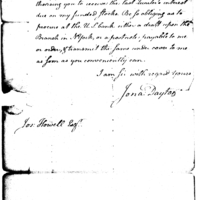 thorizing you to receive the last quarter's interest
due on my funded Stock. Be so obliging as to
procure at the U.S. bank either a draft upon the
Branch in N York, or a post note, payable to me
or order, & transmit the same under cover to me
as soon as you conveniently can.
I am Sir with regard yours
Jona Dayton
Jos Howell Esqr